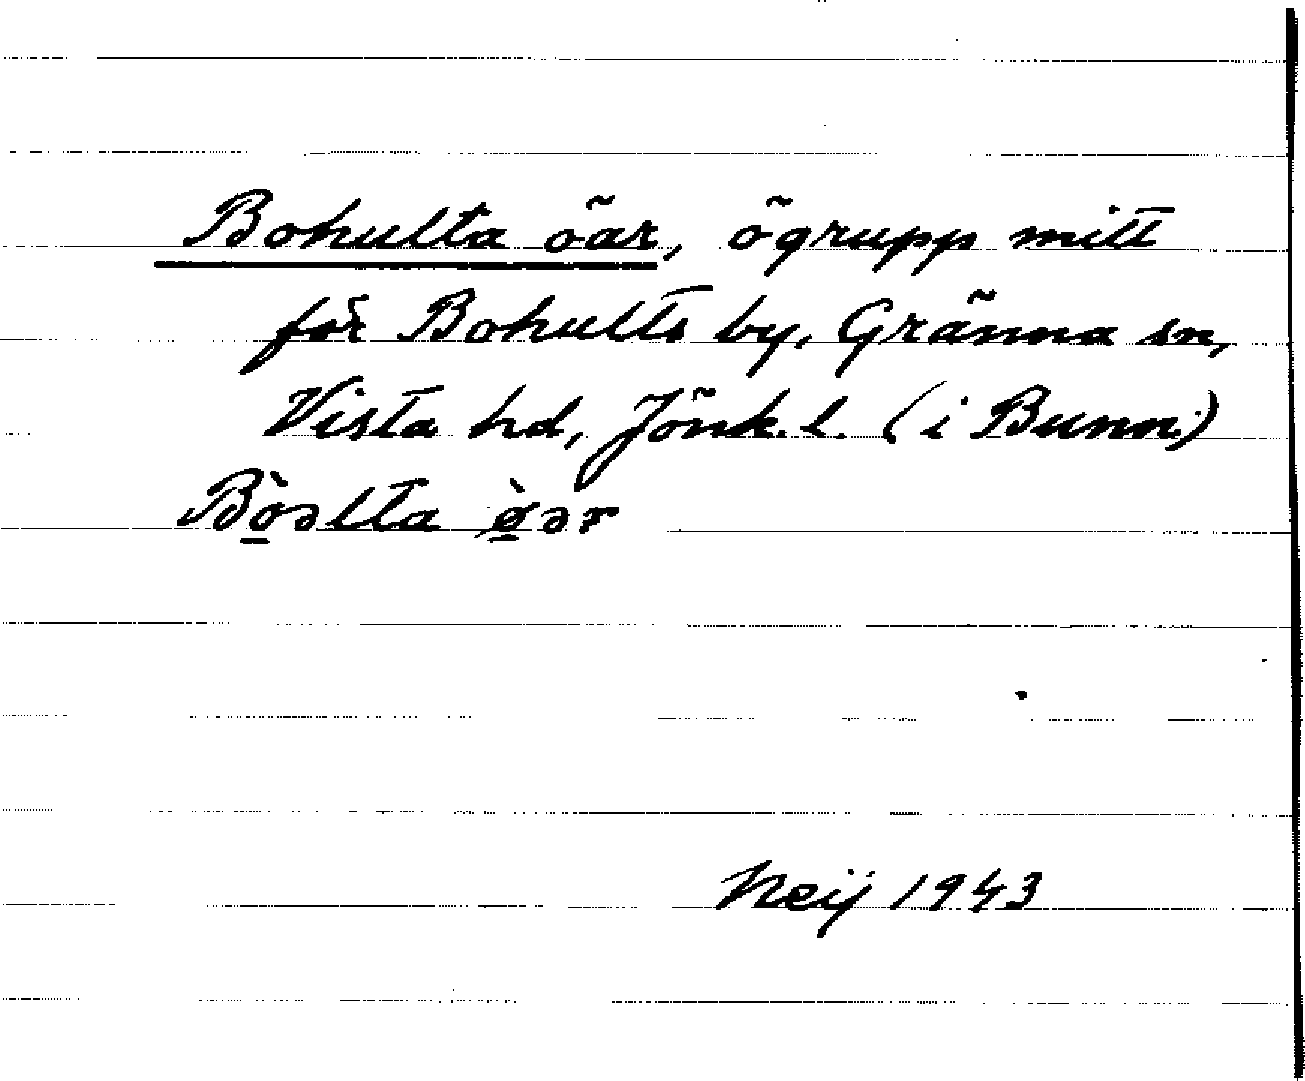 Bohulta öar, ögrupp mitt
för Bohults by, Gränna sn,
Vista hd, Jönk. l. (i Bunn.)
Bò̲əlta ø̲̀ər
Neij 1943